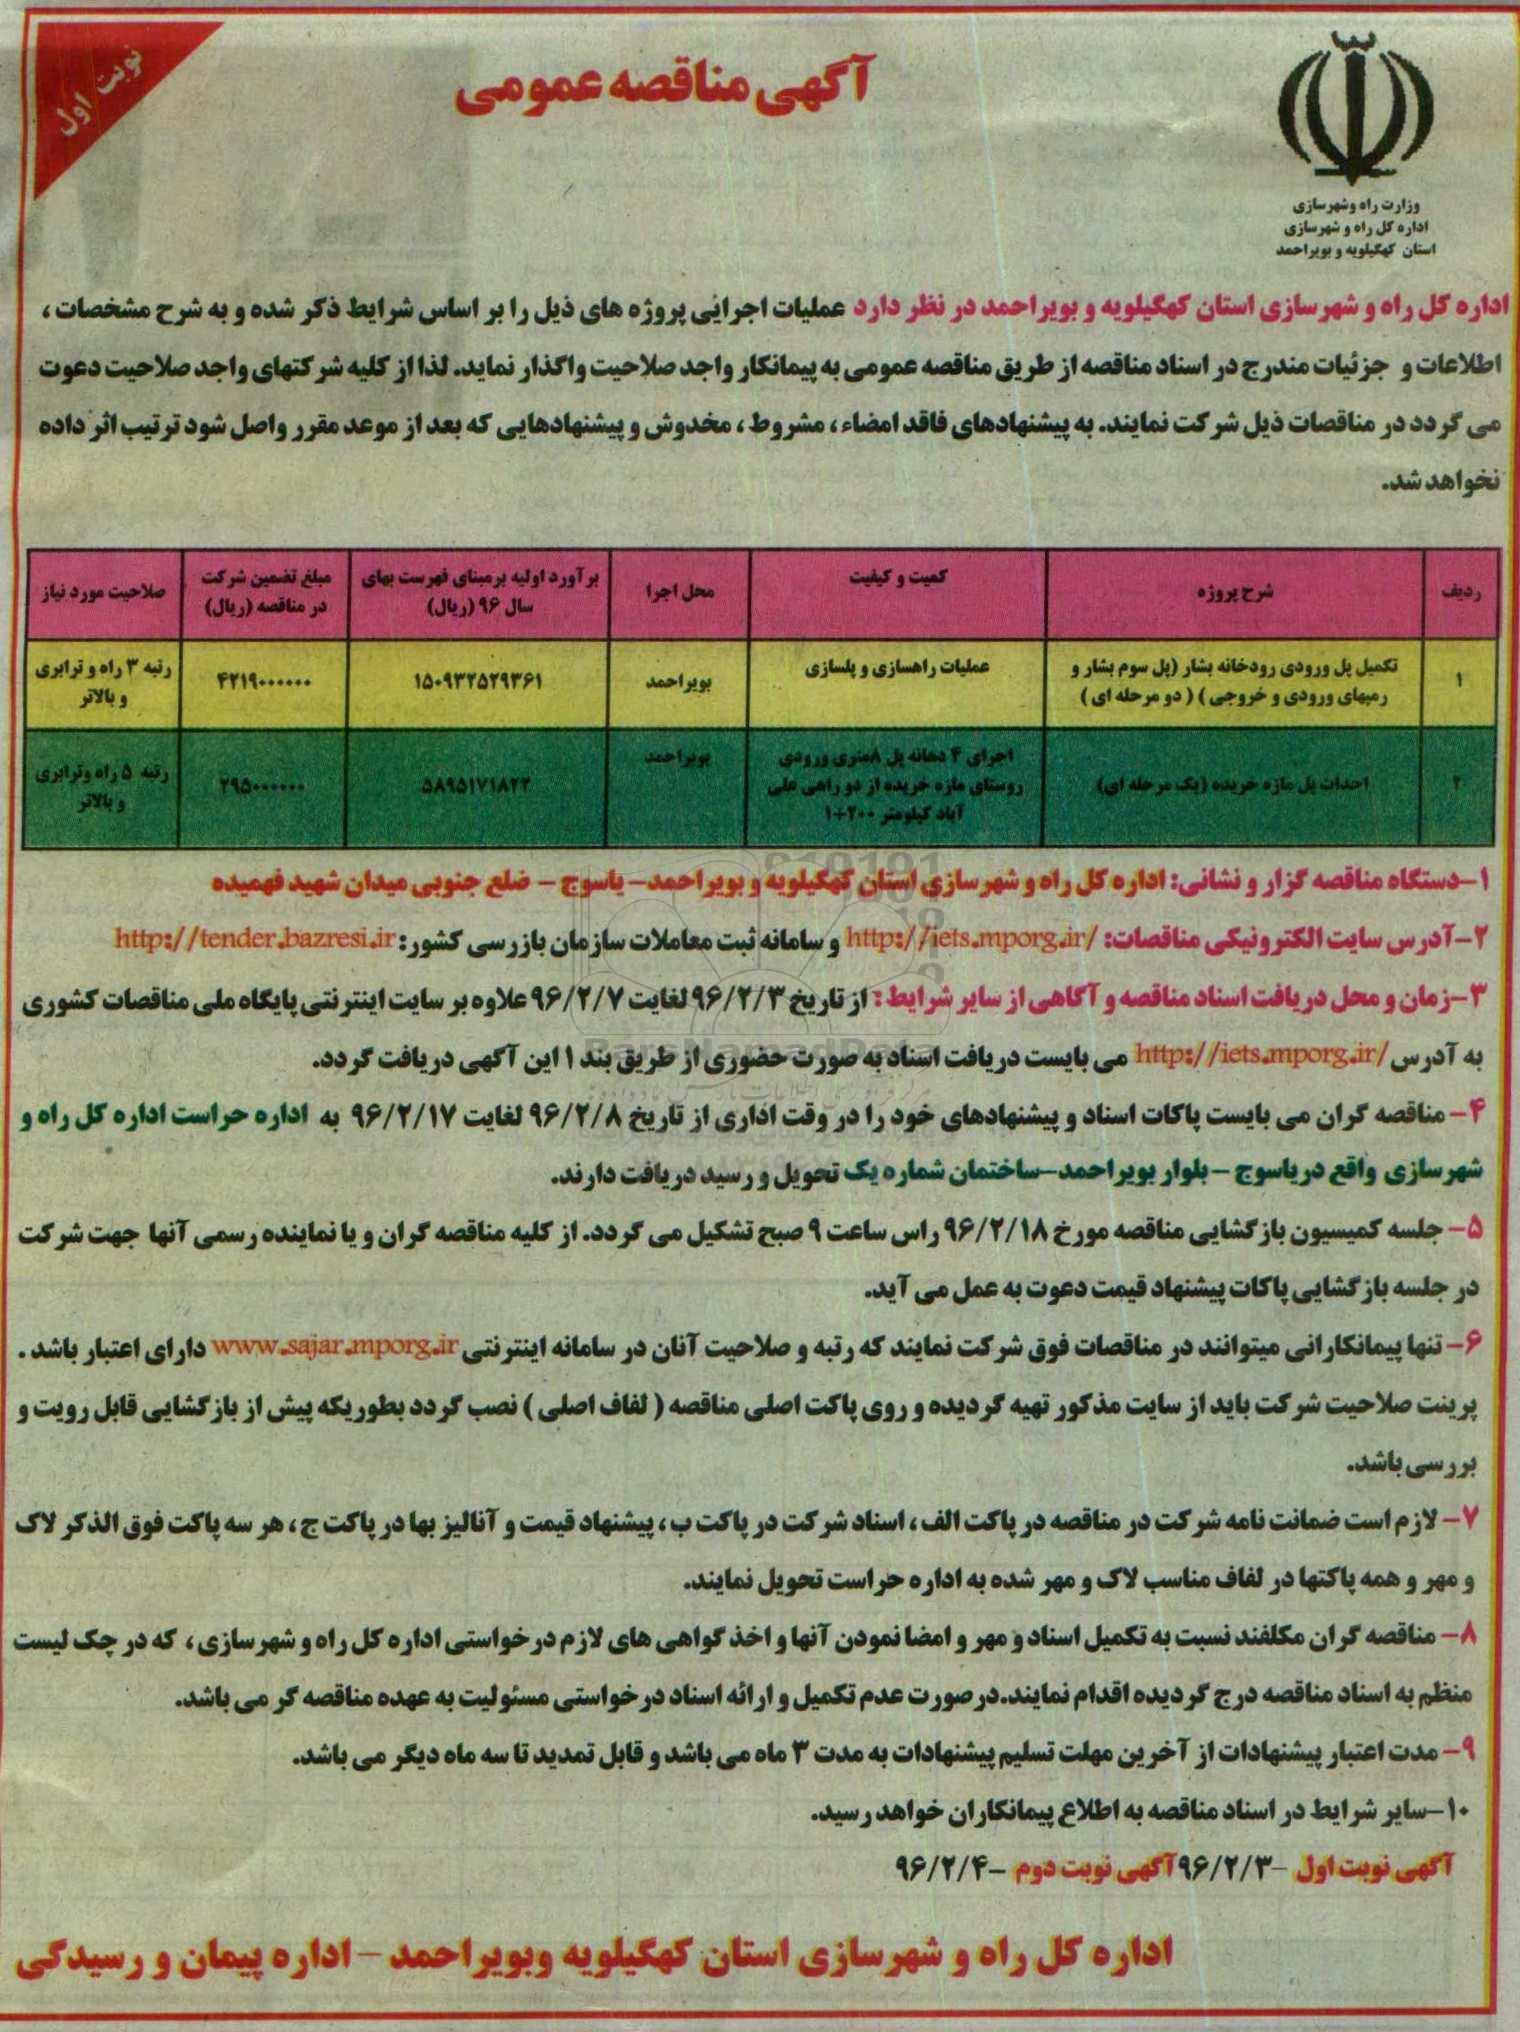 نوبت اول
آگهی مناقصه عمومی
وزارت راه وشهرسازی
اداره کل راه و شهرسازی
استان کهگیلویه و بویراحمد
اداره کل راه و شهرسازی استان کهگیلویه و بویراحمد در نظر دارد عملیات اجرایی پروژه های ذیل را بر اساس شرایط ذکر شده و به شرح مشخصات ،
اطلاعات و جزئیات مندرج در اسناد مناقصه از طریق مناقصه عمومی به پیمانکار واجد صلاحیت واگذار نماید. لذا از کلیه شرکتهای واجد صلاحیت دعوت
می گردد در مناقصات ذیل شرکت نمایند. به پیشنهادهای فاقد امضاء ، مشروط ، مخدوش و پیشنهادهایی که بعد از موعد مقرر واصل شود ترتیب اثر داده
نخواهد شد.
ردیف
شرح پروژه
کمیت و کیفیت
محل اجرا
برآورد اولیه برمبنای فهرست بهای
سال ۹۶ (ریال)
مبلغ تضمین شرکت
در مناقصه (ریال)
صلاحیت مورد نیاز
۱
تکمیل پل ورودی رودخانه بشار (پل سوم بشار و
رمپهای ورودی و خروجی ) ( دو مرحله ای )
عملیات راهسازی و پلسازی
بویراحمد
۱۵۰۹۳۲۵۲۹۳۶۱
۴۲۱۹۰۰۰۰۰۰
رتبه ۳ راه و ترابری
و بالاتر
۲
احداث پل مازه خریده (یک مرحله ای)
اجرای ۴ دهانه پل ۸متری ورودی
روستای مازه خریده از دو راهی علی
آباد کیلومتر ۲۰۰+۱
بویراحمد
۵۸۹۵۱۷۱۸۲۲
۲۹۵۰۰۰۰۰۰
رتبه ۵ راه وترابری
و بالاتر
۱-دستگاه مناقصه گزار و نشانی: اداره کل راه و شهرسازی استان کهگیلویه و بویراحمد- یاسوج - ضلع جنوبی میدان شهید فهمیده
۲-آدرس سایت الکترونیکی مناقصات: http://iets.mporg.ir/ و سامانه ثبت معاملات سازمان بازرسی کشور: http://tender.bazresi.ir
۳-زمان و محل دریافت اسناد مناقصه و آگاهی از سایر شرایط : از تاریخ ۹۶/۲/۳ لغایت ۹۶/۲/۷ علاوه بر سایت اینترنتی پایگاه ملی مناقصات کشوری
به آدرس http://iets.mporg.ir/ می بایست دریافت اسناد به صورت حضوری از طریق بند ۱ این آگهی دریافت گردد.
۴- مناقصه گران می بایست پاکات اسناد و پیشنهادهای خود را در وقت اداری از تاریخ ۹۶/۲/۸ لغایت ۹۶/۲/۱۷ به اداره حراست اداره کل راه و
شهرسازی واقع دریاسوج - بلوار بویراحمد-ساختمان شماره یک تحویل و رسید دریافت دارند.
۵- جلسه کمیسیون بازگشایی مناقصه مورخ ۹۶/۲/۱۸ راس ساعت ۹ صبح تشکیل می گردد. از کلیه مناقصه گران و یا نماینده رسمی آنها جهت شرکت
در جلسه بازگشایی پاکات پیشنهاد قیمت دعوت به عمل می آید.
۶- تنها پیمانکارانی میتوانند در مناقصات فوق شرکت نمایند که رتبه و صلاحیت آنان در سامانه اینترنتی www.sajar.mporg.ir دارای اعتبار باشد .
پرینت صلاحیت شرکت باید از سایت مذکور تهیه گردیده و روی پاکت اصلی مناقصه ( لفاف اصلی ) نصب گردد بطوریکه پیش از بازگشایی قابل رویت و
بررسی باشد.
۷- لازم است ضمانت نامه شرکت در مناقصه در پاکت الف ، اسناد شرکت در پاکت ب ، پیشنهاد قیمت و آنالیز بها در پاکت ج ، هر سه پاکت فوق الذکر لاک
و مهر و همه پاکتها در لفاف مناسب لاک و مهر شده به اداره حراست تحویل نمایند.
۸- مناقصه گران مکلفند نسبت به تکمیل اسناد و مهر و امضا نمودن آنها و اخذ گواهی های لازم درخواستی اداره کل راه و شهرسازی ، که در چک لیست
منظم به اسناد مناقصه درج گردیده اقدام نمایند.درصورت عدم تکمیل و ارائه اسناد درخواستی مسئولیت به عهده مناقصه گر می باشد.
۹- مدت اعتبار پیشنهادات از آخرین مهلت تسلیم پیشنهادات به مدت ۳ ماه می باشد و قابل تمدید تا سه ماه دیگر می باشد.
۱۰-سایر شرایط در اسناد مناقصه به اطلاع پیمانکاران خواهد رسید.
آگهی نوبت اول -۹۶/۲/۳ آگهی نوبت دوم -۹۶/۲/۴
اداره کل راه و شهرسازی استان کهگیلویه وبویراحمد - اداره پیمان و رسیدگی